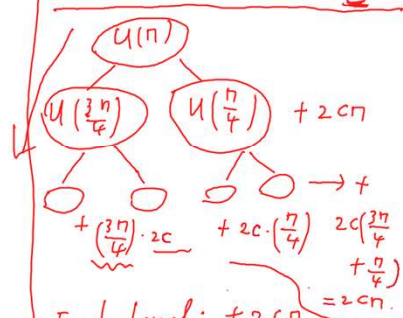 U(n)
U(3n/4) U(n/4) + 2cn
→ +
+ (3n/4)·2c + 2c·(n/4) 2c(3n/4
+ n/4)
= 2cn.
level: + 2cn